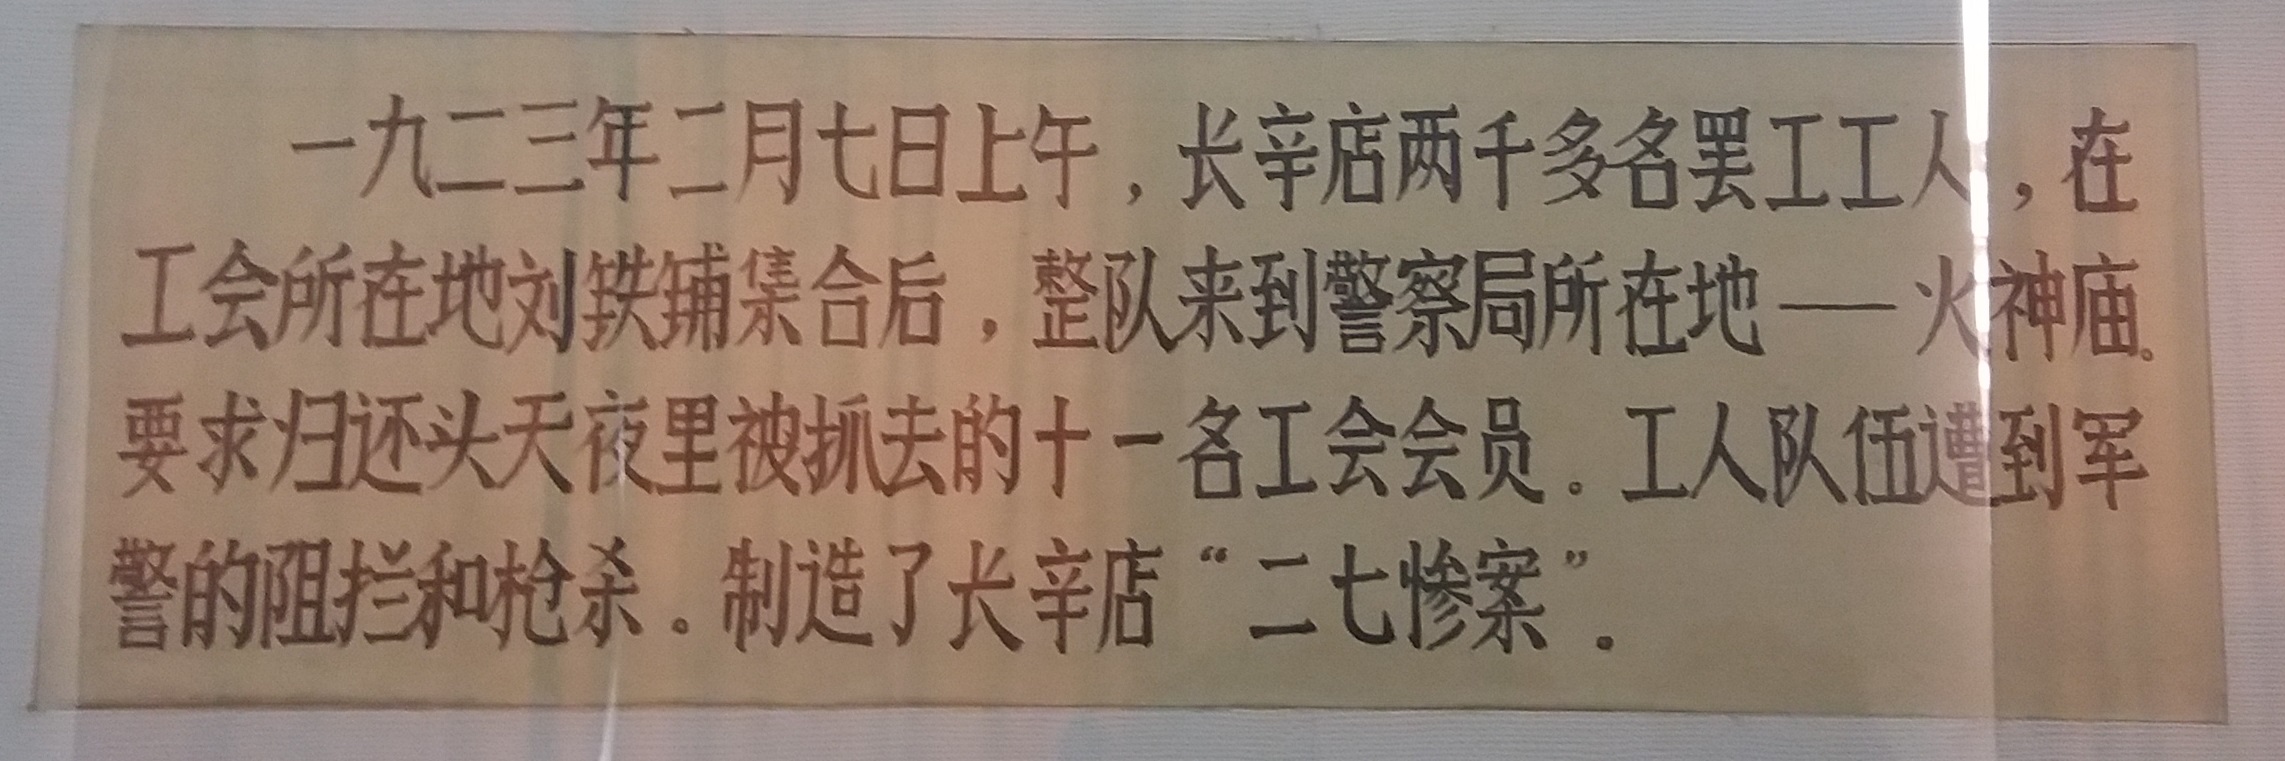 一九二三年二月七日上午，长辛店两千多名罢工工人，在
工会所在地刘铁铺集合后，整队来到警察局所在地——火神庙。
要求归还头天夜里被抓去的十一名工会会员。工人队伍遭到军
警的阻拦和枪杀。制造了长辛店“二七惨案”。